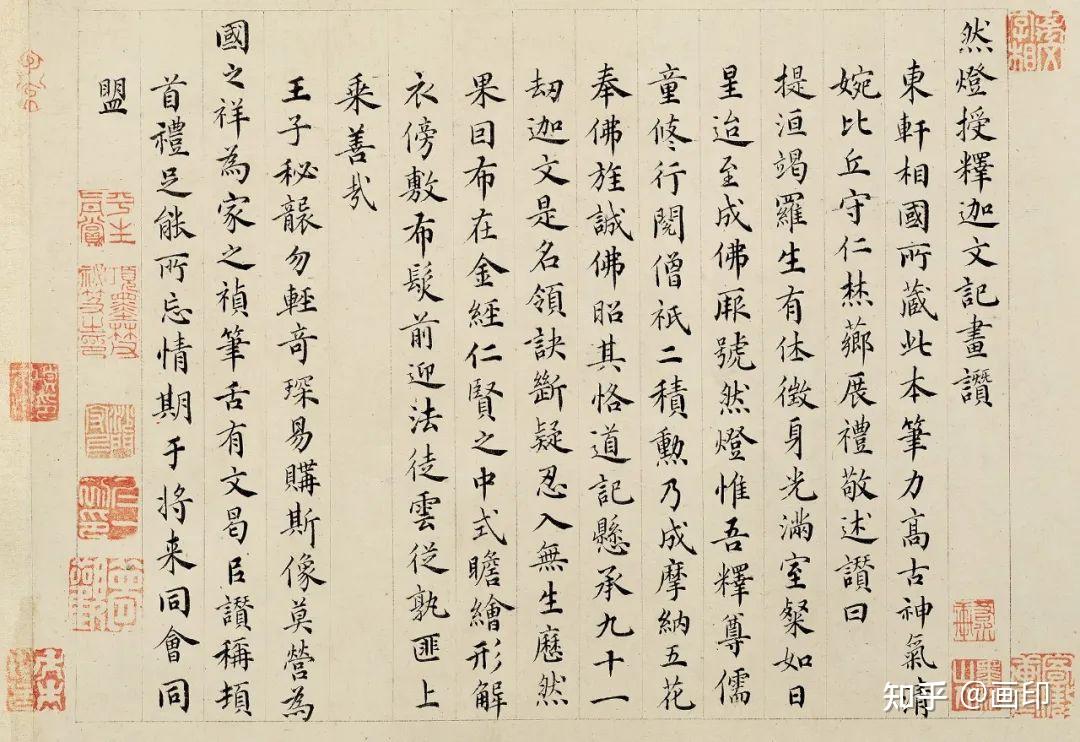 然燈授釋迦文記畫讚
東軒相國所藏此本筆力高古神氣清
婉比丘守仁焚薌展禮敬述讚曰
提洹竭羅生有休徵身光滿室粲如日
星迨至成佛厥號然燈惟吾釋尊儒
童修行閱僧祇二積勲乃成摩納五花
奉佛旌誠佛昭其恪道記懸承九十一
劫迦文是名領訣斷疑忍入無生歷然
果因布在金經仁賢之中式瞻繪形解
衣傍敷布髮前迎法徒雲從孰匪上
乘善哉
王子秘襲勿輕竒琛易購斯像莫營為
國之祥為家之禎筆舌有文曷臣讚稱頫
首禮足能所忘情期于將来同會同
盟
知乎 @画印